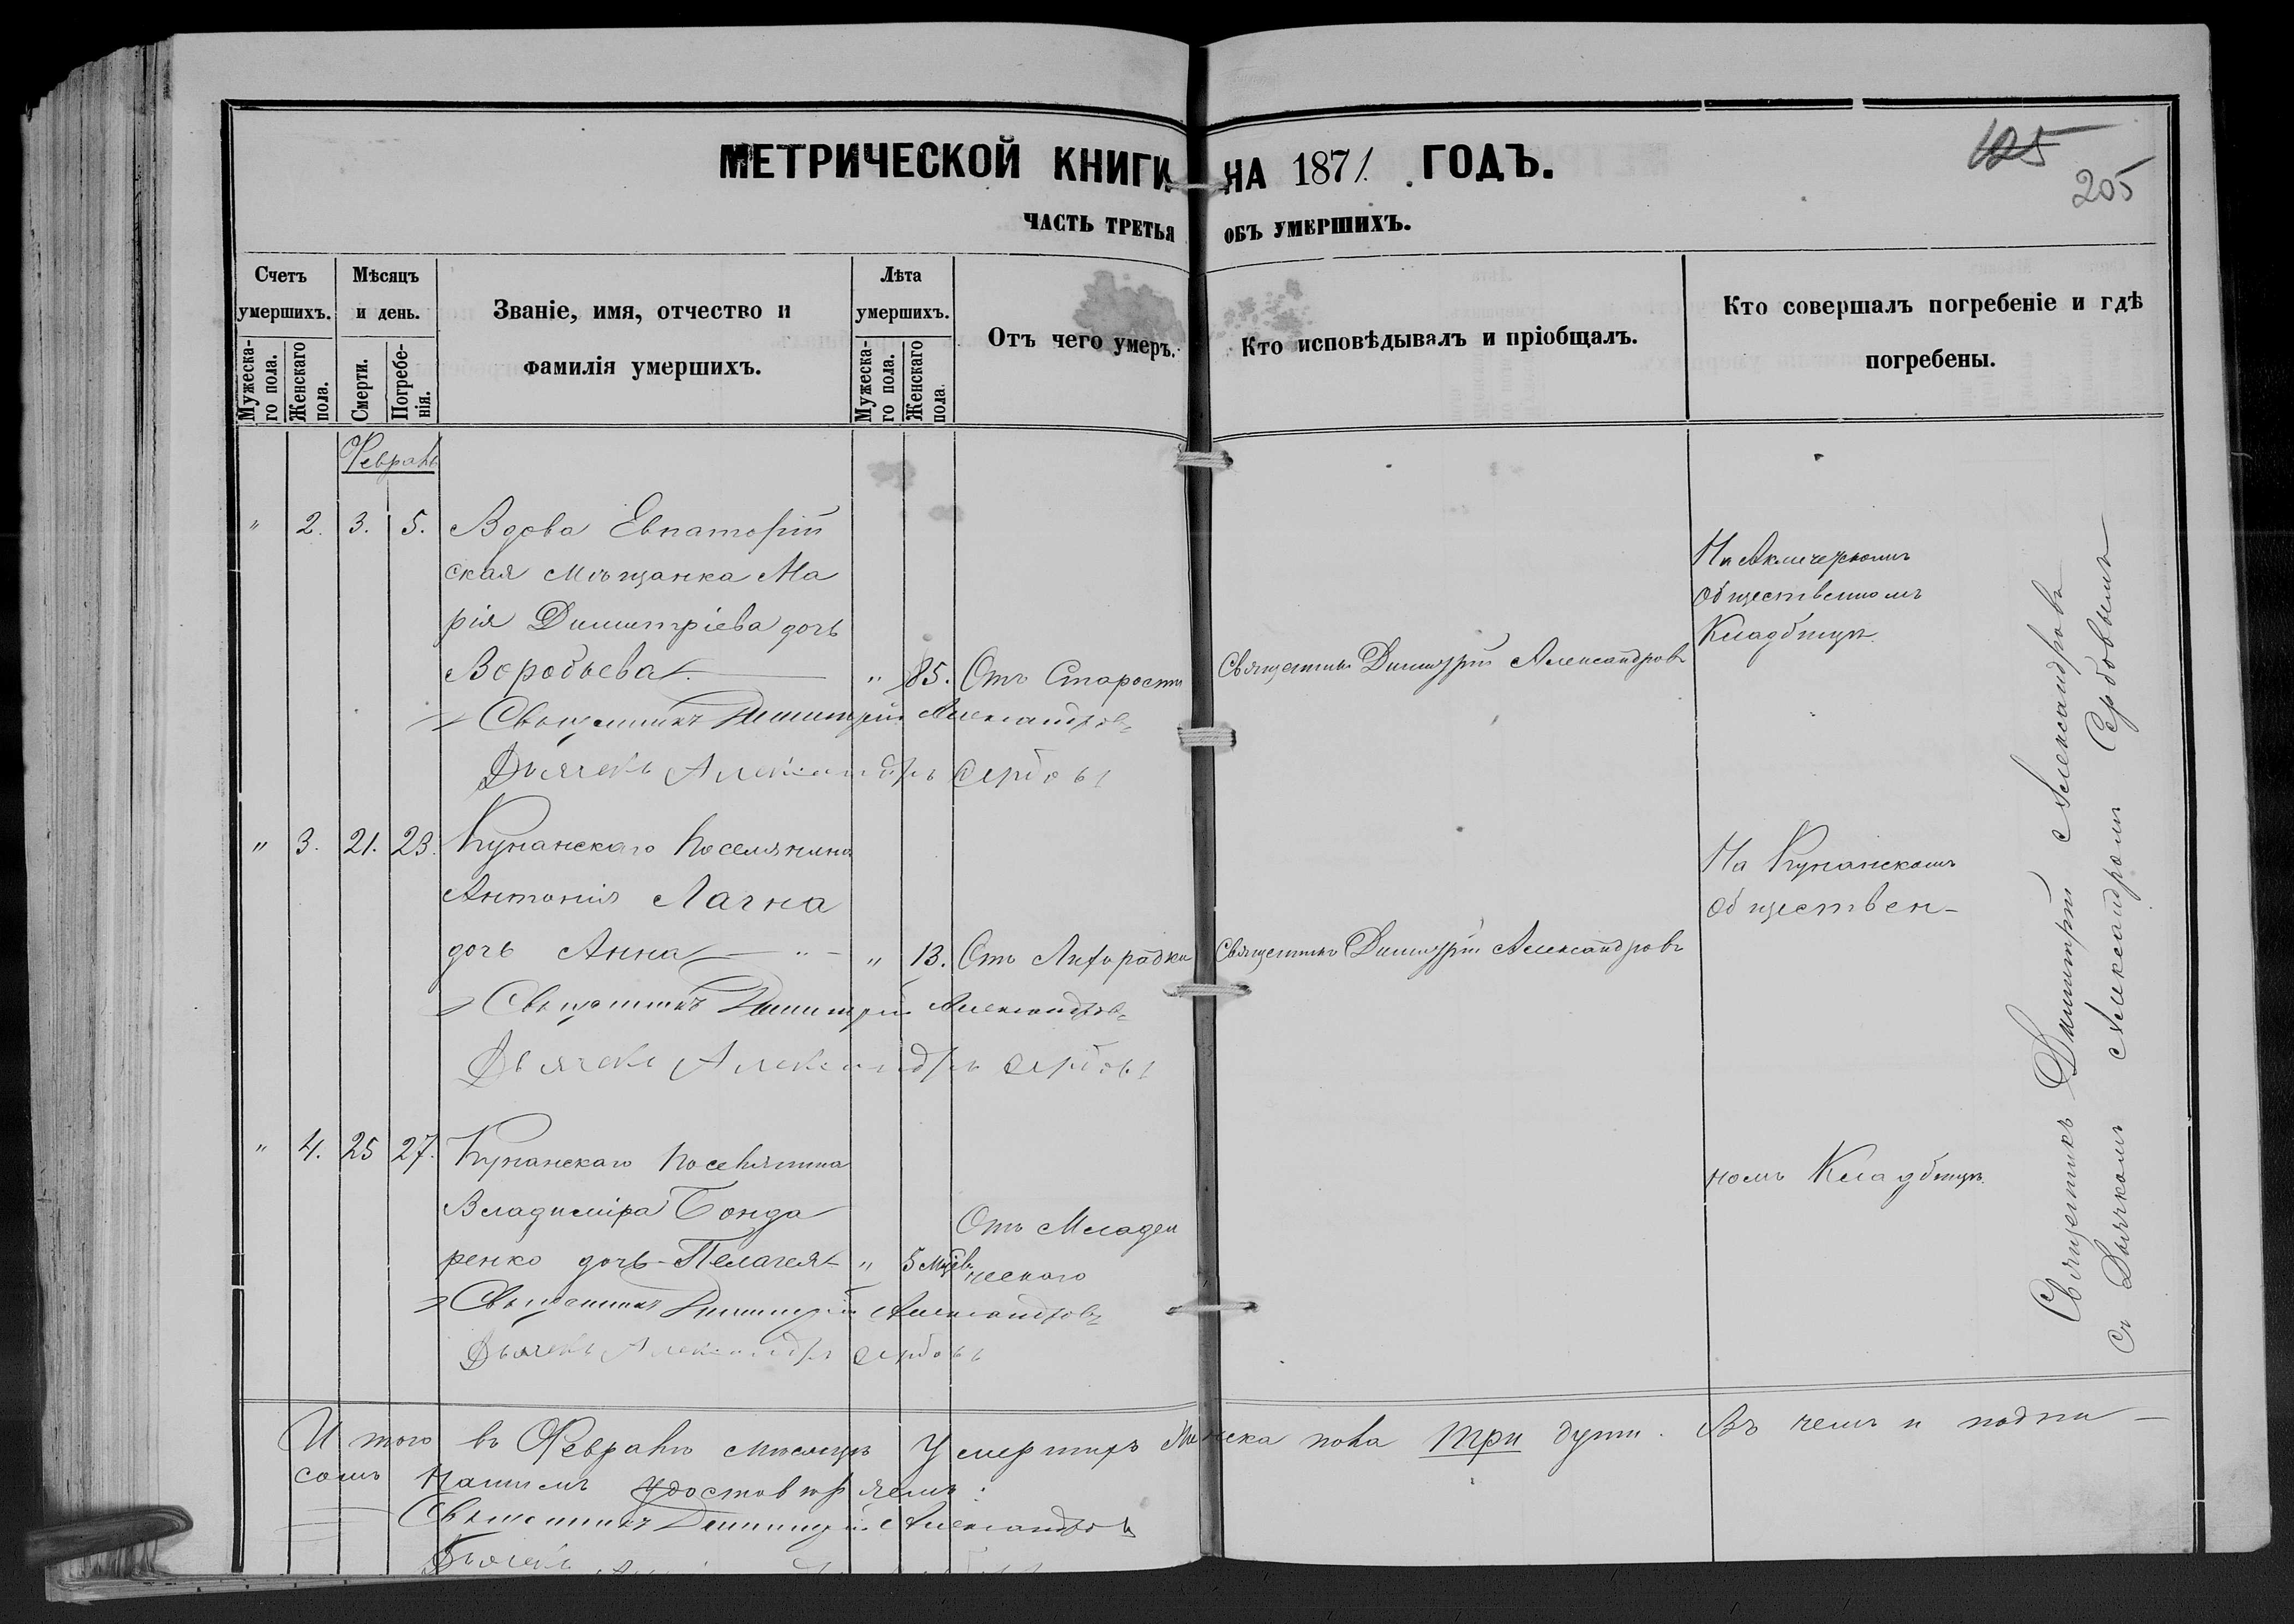 МЕТРИЧЕСКОЙ КНИГИ НА 1871. ГОДЪ.
125
205
ЧАСТЬ ТРЕТЬЯ ОБЪ УМЕРШИХЪ.
Счетъ умершихъ.
Мужескаго пола.
Женскаго пола.
Мѣсяцъ и день.
Смерти.
Погребенія.
Званіе, имя, отчество и
фамилія умершихъ.
Лѣта умершихъ.
Мужескаго пола.
Женскаго пола.
Отъ чего умеръ.
Кто исповѣдывалъ и пріобщалъ.
Кто совершалъ погребеніе и гдѣ
погребены.
Февраль
" 2. 3. 5. Вдова Евпаторій
ская мѣщанка Ма
рія Димитріева дочь
Воробьева " 85. Отъ Старости Священникъ Димитрій Александровъ
На Акмечетскомъ
Общественномъ
Кладбищѣ.
Священникъ Димитрій Александровъ
Дьячекъ Александръ Сербовъ
" 3. 21. 23. Кунанскаго Поселянина
Антонія Лагна
дочь Анна " 13. Отъ Лихорадки Священникъ Димитрій Александровъ
На Кунанскомъ
Обществен-
Священникъ Димитрій Александровъ
Дьячекъ Александръ Сербовъ
" 4. 25 27. Кунанскаго Поселянина
Владиміра Бонда
ренко дочь Пелагея " 5 мѣсв. Отъ Младен
ческаго
номъ Кладбищѣ.
Священникъ Димитрій Александровъ
Дьячекъ Александръ Сербовъ
Священникъ Димитрій Александровъ
съ Дьячкомъ Александромъ Сербовымъ
Итого въ Февралѣ мѣсяцѣ Умершихъ Женска пола три души. Въ чемъ и подпи-
сомъ Нашимъ удостовѣряемъ:
Священникъ Димитрій Александровъ
Дьячекъ